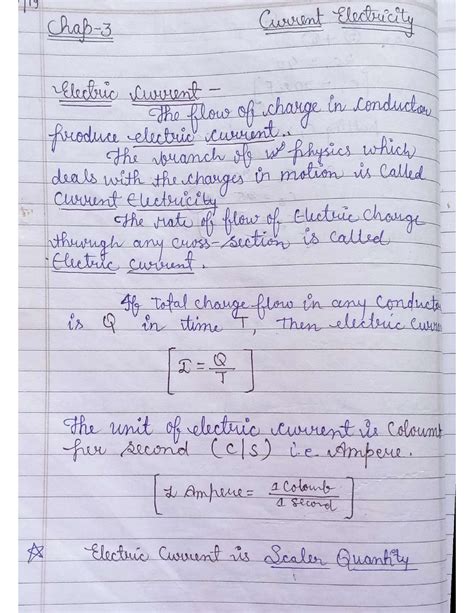 19
Chap-3 Current Electricity
Electric Current -
The flow of charge in conductor
produce electric current..
The branch of physics which
deals with the charges in motion is called
Current Electricity
The rate of flow of Electric Charge
through any cross-section is called
Electric current.
If Total charge flow in any Conducto
is Q in time T, Then electric curre
[I = Q/T]
The unit of electric current is Coloumb
per second (C/S) i.e Ampere.
[1 Ampere = 1 Colomb / 1 second]
☆ Electric Current is Scaler Quantity